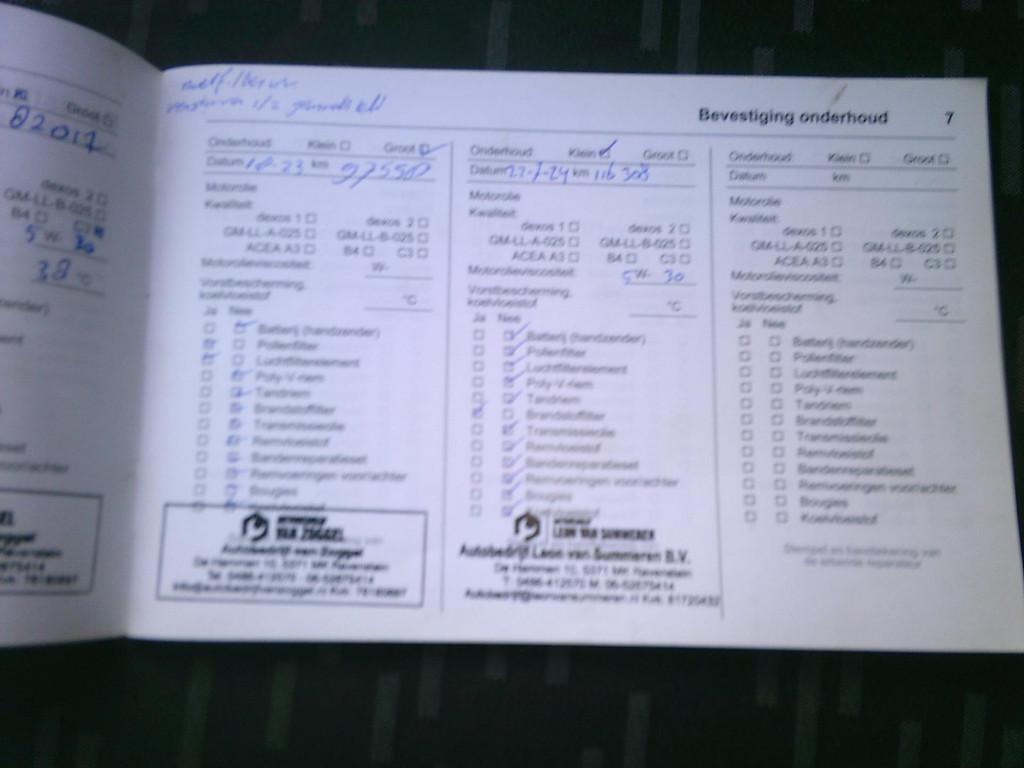 Groot
82017
dexos 2
GM-LL-B-025
B4
5 W- 30
38 °C
Bevestiging onderhoud 7
Onderhoud: Klein Groot
Datum 18-23 km 97550
Motorolie
Kwaliteit:
dexos 1 dexos 2
GM-LL-A-025 GM-LL-B-025
ACEA A3 B4 C3
Motorolieviscositeit: W-
Vorstbescherming,
koelvloeistof °C
Ja Nee
Batterij (handzender)
Pollenfilter
Luchtfilterelement
Poly-V-riem
Tandriem
Brandstoffilter
Transmissieolie
Remvloeistof
Bandenreparatieset
Remvoeringen voor/achter
Bougies
VAN ZOGGEL
Autobedrijf van Zoggel
De Hammen 10, 5371 MK Ravenstein
Tel. 0486-412570 06-52675414
Onderhoud: Klein Groot
Datum 22-1-24 km 116 308
Motorolie
Kwaliteit:
dexos 1 dexos 2
GM-LL-A-025 GM-LL-B-025
ACEA A3 B4 C3
Motorolieviscositeit: 5 W- 30
Vorstbescherming,
koelvloeistof °C
Ja Nee
Batterij (handzender)
Pollenfilter
Luchtfilterelement
Poly-V-riem
Tandriem
Brandstoffilter
Transmissieolie
Remvloeistof
Bandenreparatieset
Remvoeringen voor/achter
Bougies
LEON VAN SUMMEREN
Autobedrijf Leon van Summeren B.V.
De Hammen 10, 5371 MK Ravenstein
T. 0486-412570 M. 06-52675414
Autobedrijf@leonvansummeren.nl Kvk: 81720432
Onderhoud: Klein Groot
Datum km
Motorolie
Kwaliteit:
dexos 1 dexos 2
GM-LL-A-025 GM-LL-B-025
ACEA A3 B4 C3
Motorolieviscositeit: W-
Vorstbescherming,
koelvloeistof °C
Ja Nee
Batterij (handzender)
Pollenfilter
Luchtfilterelement
Poly-V-riem
Tandriem
Brandstoffilter
Transmissieolie
Remvloeistof
Bandenreparatieset
Remvoeringen voor/achter
Bougies
Koelvloeistof
Stempel en handtekening van
de erkende reparateur